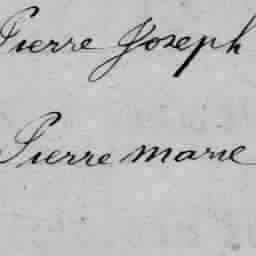 Pierre Joseph
Pierre marie